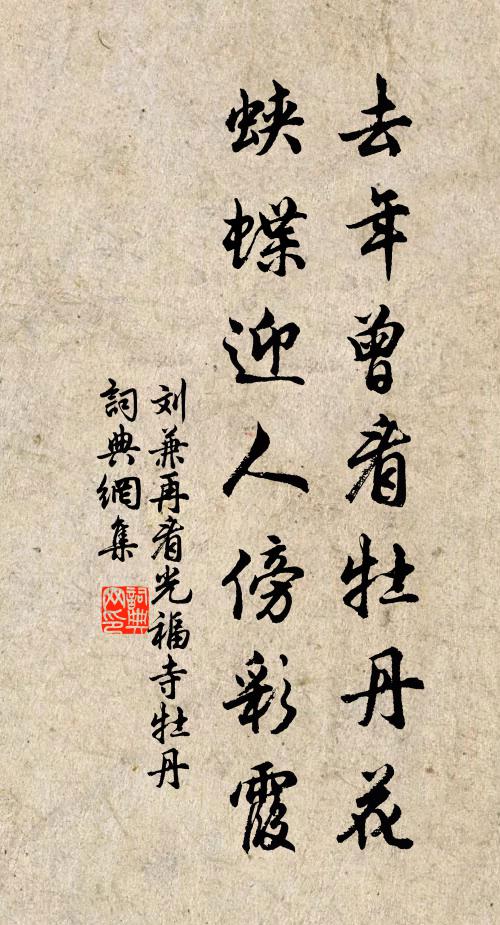 去年曾看牡丹花
蛺蝶迎人傍彩霞
刘兼再看光福寺牡丹
詞典網集
詞典网印